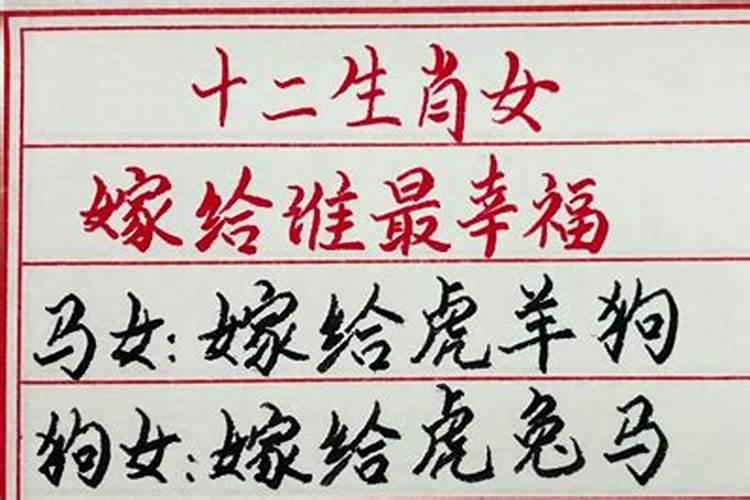 十二生肖女
嫁给谁最幸福
马女:嫁给虎羊狗
狗女:嫁给虎兔马